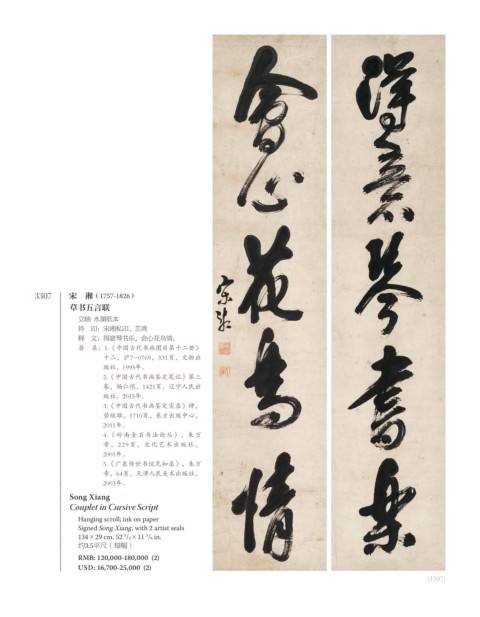 得意琴書樂
會心花鳥情
宋湘
3307
宋 湘（1757-1826）
草书五言联
立轴 水墨纸本
钤 印：宋湘私印、芷湾
释 文：得意琴书乐，会心花鸟情。
著 录：1.《中国古代书画图目第十二册》
十二，沪7-0769，331页，文物出
版社，1993年。
2.《中国古代书画鉴定笔记》第三
卷，杨仁恺，1421页，辽宁人民出
版社，2015年。
3.《中国古代书画鉴定实录》肆，
劳继雄，1710页，东方出版中心，
2011年。
4.《岭南金石书法论丛》，朱万
章，229页，文化艺术出版社，
2001年。
5.《广东传世书迹见知录》，朱万
章，64页，天津人民美术出版社，
2003年。
Song Xiang
Couplet in Cursive Script
Hanging scroll; ink on paper
Signed Song Xiang, with 2 artist seals
134 × 29 cm. 52 3/4 × 11 3/8 in.
约3.5平尺（每幅）
RMB: 120,000-180,000 (2)
USD: 16,700-25,000 (2)
[3307]